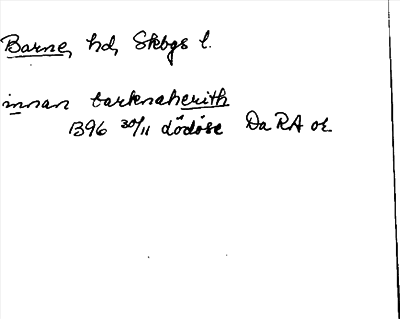 Barne, hd, Skbgs l.
innan barknaherith
1396 30/11 dödöse Da RA or.